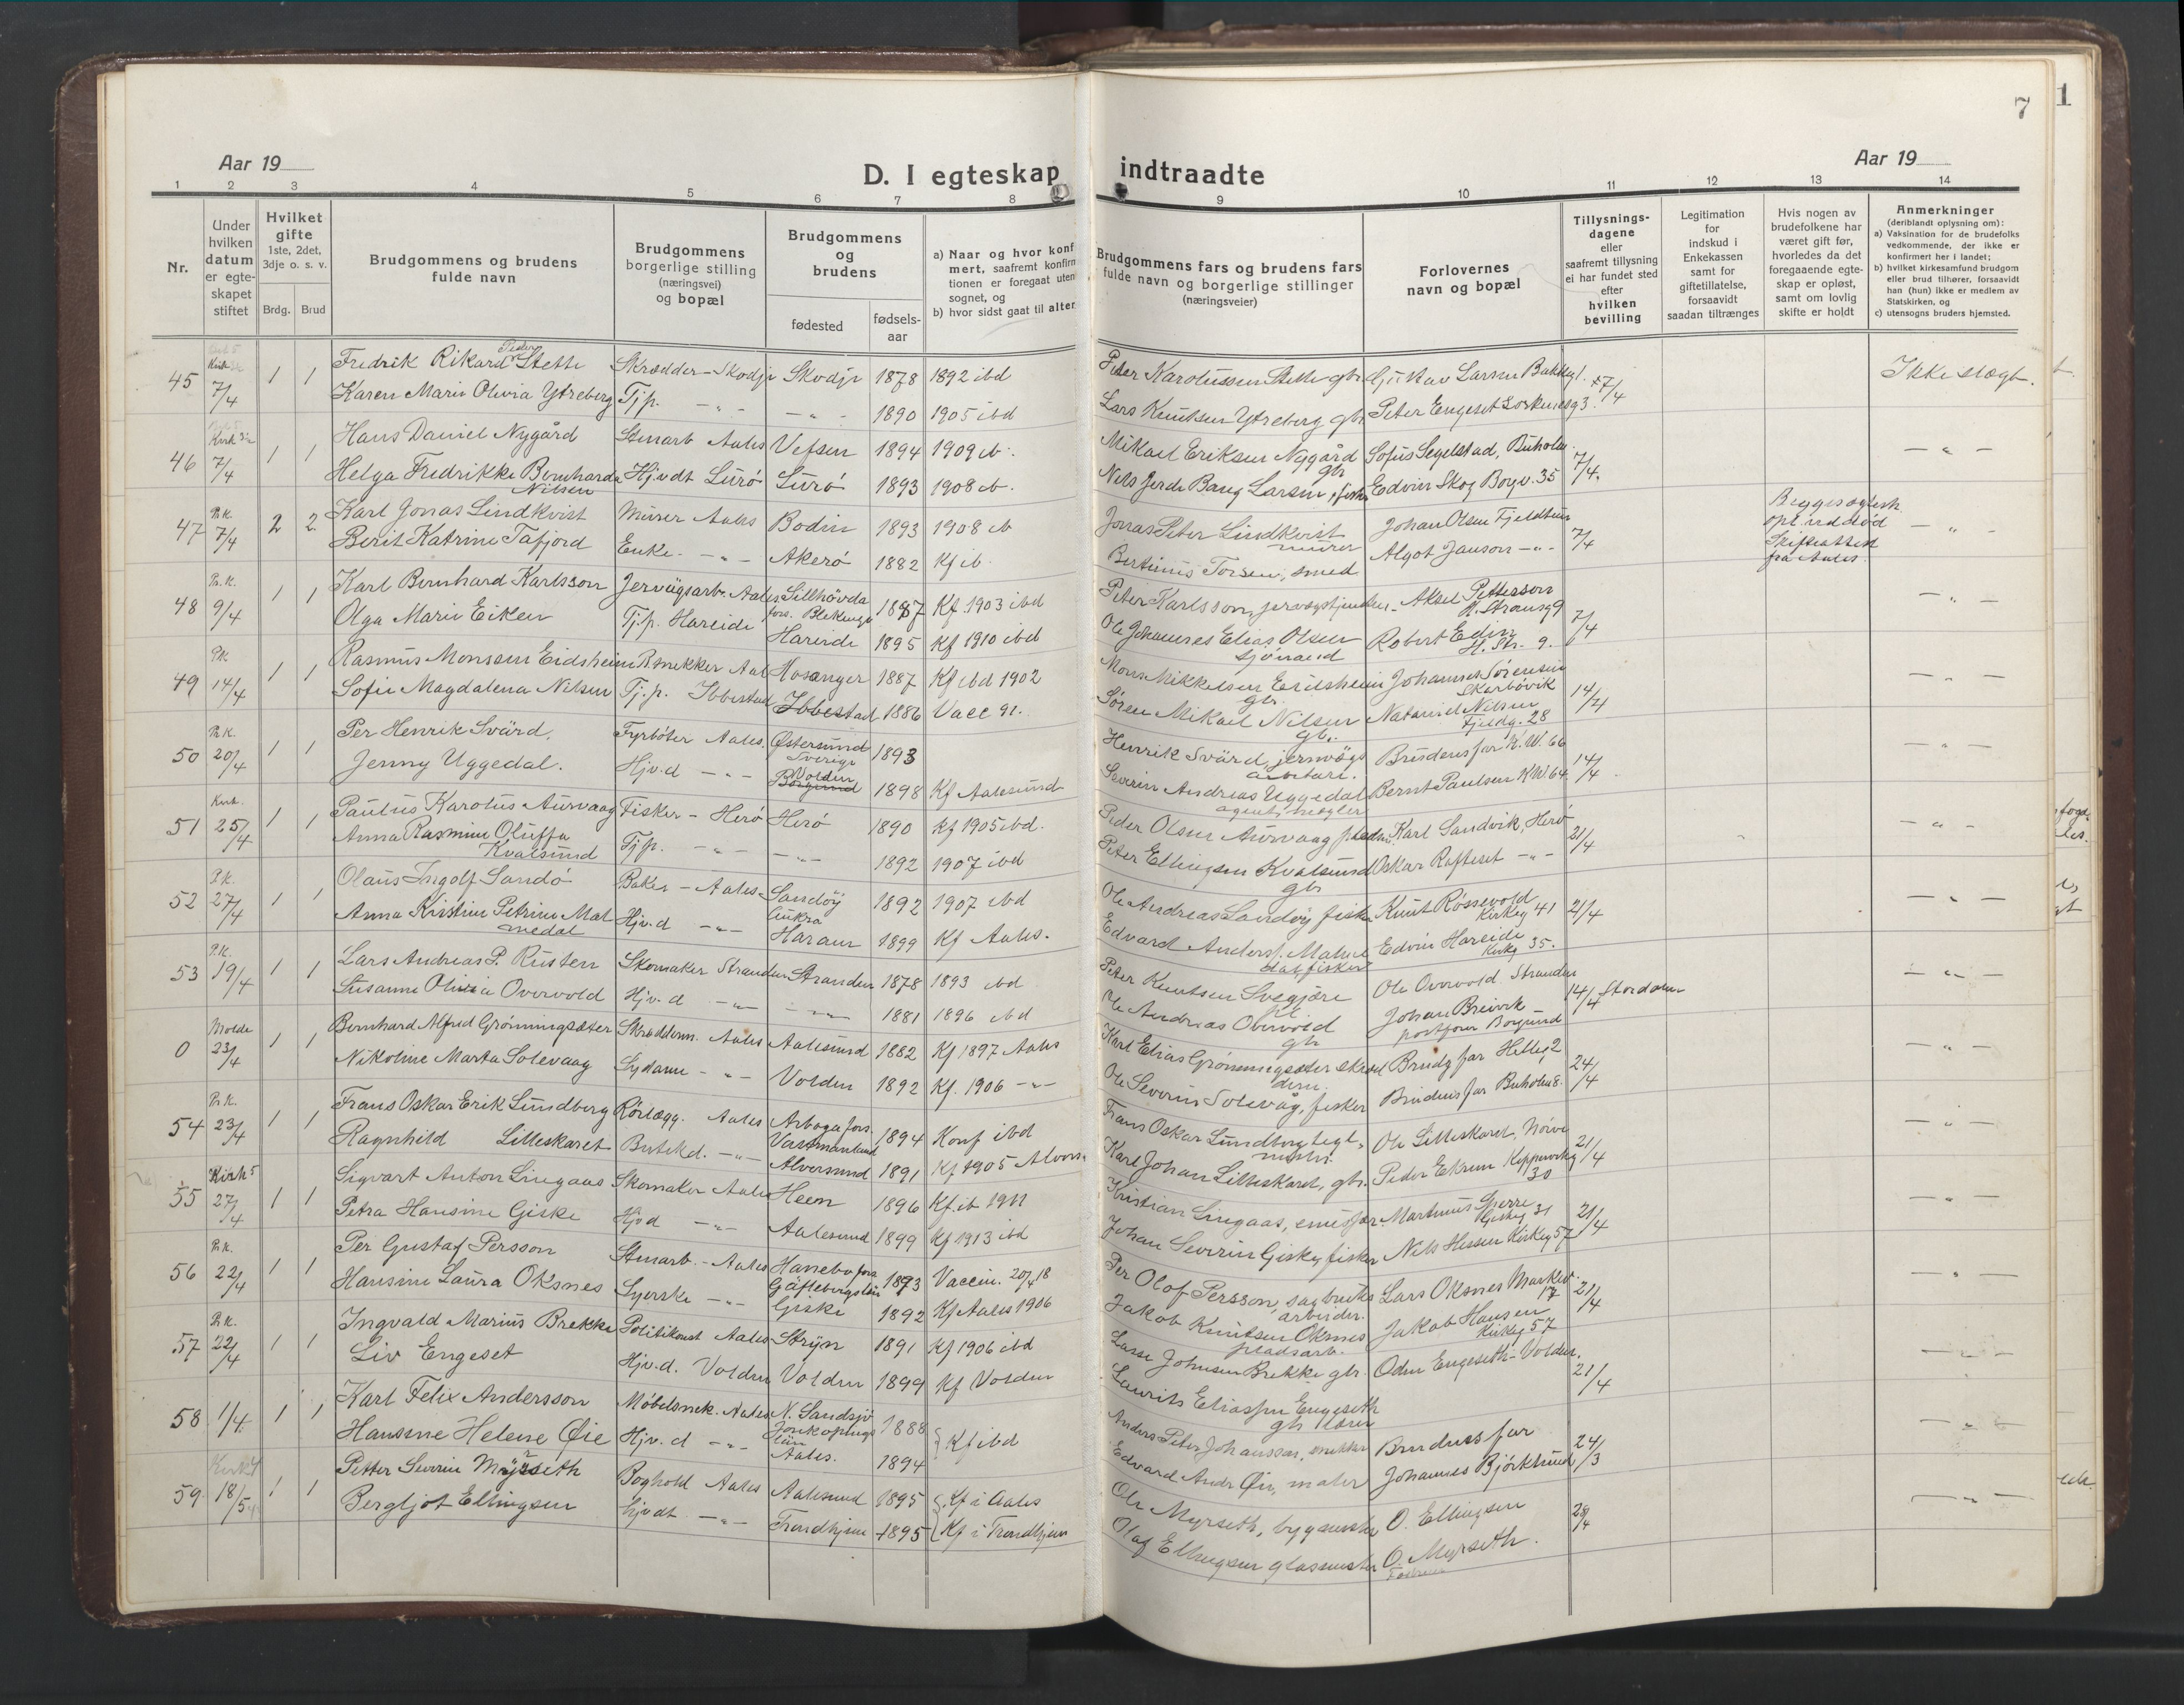 7
1
Aar 19
D. I egteskap indtraadte
Aar 19
1 2 3 4 5 6 7 8 9 10 11 12 13 14
Nr.
Under hvilken datum er egteskapet stiftet
Hvilket gifte 1ste, 2det, 3dje o. s. v.
Brdg. Brud
Brudgommens og brudens fulde navn
Brudgommens borgerlige stilling (næringsvei) og bopæl
Brudgommens og brudens
fødested
fødsels-aar
a) Naar og hvor konf
mert, saafremt konfirm
tionen er foregaat uten
sognet, og
b) hvor sidst gaat til alter
Brudgommens fars og brudens fars fulde navn og borgerlige stillinger (næringsveier)
Forlovernes navn og bopæl
Tillysnings-dagene eller saafremt tillysning ei har fundet sted efter hvilken bevilling
Legitimation for indskud i Enkekassen samt for giftetillatelse, forsaavidt saadan tiltrænges
Hvis nogen av brudefolkene har været gift før, hvorledes da det foregaaende egteskap er opløst, samt om lovlig skifte er holdt
Anmerkninger
(deriblandt oplysning om):
a) Vaksination for de brudefolks vedkommende, der ikke er konfirmert her i landet;
b) hvilket kirkesamfund brudgom eller brud tilhører, forsaavidt han (hun) ikke er medlem av Statskirken, og
c) utensogns bruders hjemsted.
45 7/4 1 1 Fredrik Rikard Peder Stette Skrædder - Skodje Skodje 1878 1892 ibd Peder Karolussen Stette gbr. Gustav Larsen 7/4 Ikke slægt.
Karen Marie Olivia Ytreberg Tjp. - " - - " - 1890 1905 ibd Lars Knutsen Ytreberg gbr Peter Engeset
46 7/4 1 1 Hans Daniel Nygård Stenarb Aales Vefsen 1894 1909 ib. Mikael Eriksen Nygård gbr Sofus Segelstad, Buholm 7/4 - " -
Helga Fredrikke Bernharda Nilsen Hjvdt Lurø Lurø 1893 1908 ib. Nils Larsen, fisker Edvin Skog 35
47 P.K. 7/4 2 2 Karl Jonas Lindkvist Murer Aales Bodin 1893 1908 ib Jonas Peter Lindkvist murer Johan Olsen 7/4 - " -
Berit Katrine Tafjord Enke - " - Akerø 1882 Kf ib. Bertinus Torsen, smed Algot Janson - " - Skifteattest fra Aales.
48 P.K. 9/4 1 1 Karl Bernhard Karlsson Jervægsarb. Aales Sillhövda fors. Blekinge 1887 Kf. 1903 ibd Peter Karlsson, Aksel Petterson 7/4 - " -
Olga Marie Eiken Tj.p. Hareide Hareide 1895 Kf 1910 ibd Ole Johannes Elias Olsen sjömand Robert Edin 9.
49 P.K. 14/4 1 1 Rasmus Monsen Eidsheim Snekker Aal Hosanger 1887 Kf ibd 1902 Mons Mikkelsen Eidsheim gbr. Johannes Sørensen Skarbøvik 14/4 - " -
Sofie Magdalena Nilsen Tj.p. Ibbestad Ibbestad 1886 Vacc 91. Søren Mikael Nilsen gbr. Nataniel Nilsen Fjeldg. 28
50 P.K. 20/4 1 1 Per Henrik Svärd. Fyrbøter Aales. Østersund Sverige 1893 Henrik Svärd, jernvägs arbetare. Brudens far K.W. 66 14/4 - " -
Jenny Uggedal. Hjv.d - " - Volden 1898 Kf Aalesund Severin Andreas Uggedal agent, megler Bernt Paulsen K.W 64
51 Kirk. 25/4 1 1 Paulus Karolus Aurvaag Fisker - Herø Herø 1890 Kf 1905 ibd. Peder Olsen Aurvaag Karl Sandvik, Herø 21/4 - " -
Anna Rasmine Oluffa Kvalsund Tjp. - " - - " - 1892 1907 ibd Peter Ellingsen Kvalsund gbr Oskar Rafteset - " -
52 P.K. 27/4 1 1 Olaus Ingolf Sandø Baker - Aales Sandøy Aukra 1892 1907 ibd Ole Andreas Sandøy fisker Knut Røssevold Kirkeg 41 21/4 - " -
Anna Kristine Petrine Malmedal Hjv.d - " - Haram 1899 Kf Aales. Edvard Anders. Malmedal fisker Edvin Hareide Kirkeg 35.
53 P.K. 19/4 1 1 Lars Andreas P. Rusten Skomaker Stranden Stranden 1878 1893 ibd Peter Knutsen Ole Overvold Stranden 14/4 Stordalen - " -
Susanne Olivia Overvold Hjv.d - " - - " - 1881 1896 ibd Ole Andreas Overvold gbr Johan Breivik Borgund
0 Molde 23/4 1 1 Bernhard Alfred Grønningsæter Skræderm. Aales Aalesund 1882 Kf 1897 Aales Karl Elias Grønningsæter Brudg far 24/4 - " -
Nikoline Marta Solevaag Sydame - " - Volden 1892 Kf. 1906 - " - Ole Severin Solevåg, fisker Brudens far Buholm 8.
54 P.K. 23/4 1 1 Frans Oskar Erik Lundberg Rörlægg. Aales Arboga fors. Västmanland 1894 Konf ibd Frans Oskar Lundberg Ole Lilleskaret, Nørve 21/4 - " -
Ragnhild Lilleskaret Butikd. - " - Alversund 1891 Kf 1905 Karl Johan Lilleskaret, gbr. Peder Ekrem 30
55 Kirk 5 27/4 1 1 Sigvart Anton Lingaas Skomaker Aales Heen 1896 Kf. ib 1911 Kristian Lingaas, Martinus Sperre 31 21/4 - " -
Petra Hansine Giske Hjvd - " - Aalesund 1899 Kf 1913 ibd Johan Severin Giske, fisker Nils Hessen Kirkeg 57
56 P.K. 22/4 1 1 Per Gustaf Persson Stenarb. - Aales Hanebo fors. 1893 Vaccin. 20/4 18 Per Olof Persson, sagbruks arbeider. Lars Oksnes 17 21/4 - " -
Hansine Laura Oksnes Syerske - " - Giske 1892 Kf Aales 1906 Jakob Knutsen Oksnes pladsarb. Jakob Hansen Kirkeg 57
57 P.K. 22/4 1 1 Ingvald Marius Brekke Politikonst Aales Stryn 1891 Kf 1906 ibd Lasse Johnsen Brekke gbr. Odin Engeseth - Volden. 21/4 - " -
Liv Engeset Hjv.d. Volden Volden 1899 Kf Volden Laurits Eliassen Engeseth gbr lærer
58 1/4 1 1 Karl Felix Andersson Møbelsnek. Aales N. Sandsjö Jönköpings län 1888 Kf ibd Anders Peter Johansson, snekker Brudens far 24/3 - " -
Hansine Helene Øie Hjv.d - " - Aales. 1894 Edvard Andr Øie, maler Johannes Björklund
59 18/5 1 1 Petter Severin Myrseth Boghold Aales Aalesund 1895 Kf i Aales Ole Myrseth, bygmester O. Ellingsen 28/4 - " -
Bergljot Ellingsen Hjvdt - " - Trondhjem 1895 Kf i Trondhjem Olaf Ellingsen glasmester O. Myrseth.